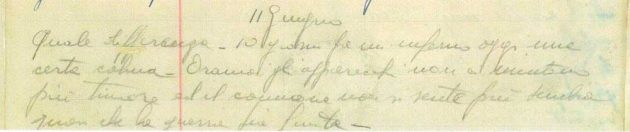 11 Giugno
Quale differenza - 10 giorni fa un inferno oggi una
certa calma - Oramai gli apparecchi non ci mettono
più timore ed il cannone non si sente più sembra
quasi che la guerra sia finita -